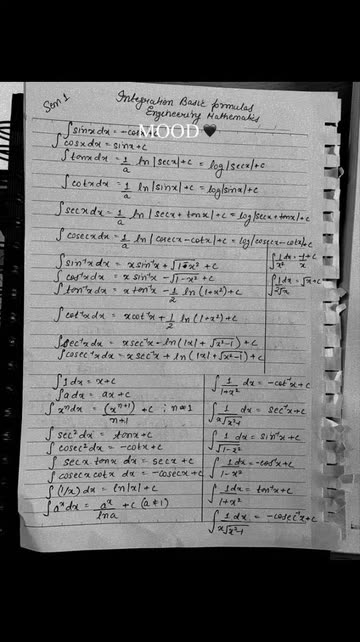 Sem 1
Integration Basic formulas
Engineering Mathematics
∫sinx dx = -cos
MOOD🖤
∫cosx dx = sinx+c
∫tanx dx = 1/a ln|secx|+c = log|secx|+c
∫cotx dx = 1/a ln|sinx|+c = log|sinx|+c
∫secx dx = 1/a ln|secx+tanx|+c = log|secx+tanx|+c
∫cosecx dx = 1/a ln|cosecx-cotx|+c = log|cosecx-cotx|+c
∫sin⁻¹x dx = x sin⁻¹x + √(1-x²) + c
∫cos⁻¹x dx = x sin⁻¹x - √(1-x²) + c
∫tan⁻¹x dx = x tan⁻¹x - 1/2 ln(1+x²)+c
∫cot⁻¹x dx = xcot⁻¹x + 1/2 ln(1+x²)+c
∫sec⁻¹x dx = x sec⁻¹x - ln(|x| + √(x²-1))+c
∫cosec⁻¹x dx = x sec⁻¹x + ln(|x| + √(x²-1))+c
∫1/x² dx = -1/x + c
∫1/2√x dx = √x+c
∫1 dx = x+c
∫a dx = ax+c
∫xⁿ dx = (xⁿ⁺¹)/n+1 + c ; n≠1
∫sec² dx = tanx+c
∫cosec² dx = -cotx+c
∫secx tanx dx = secx+c
∫cosecx cotx dx = -cosecx+c
∫(1/x) dx = ln|x|+c
∫aˣ dx = aˣ/ln a + c (a≠1)
∫1/1+x² dx = -cot⁻¹x+c
∫1/x√x²-1 dx = sec⁻¹x+c
∫1/√1-x² dx = sin⁻¹x+c
∫1/1-x² dx = -cos⁻¹x+c
∫1/1+x² dx = tan⁻¹x+c
∫1/x√x²-1 dx = -cosec⁻¹x+c